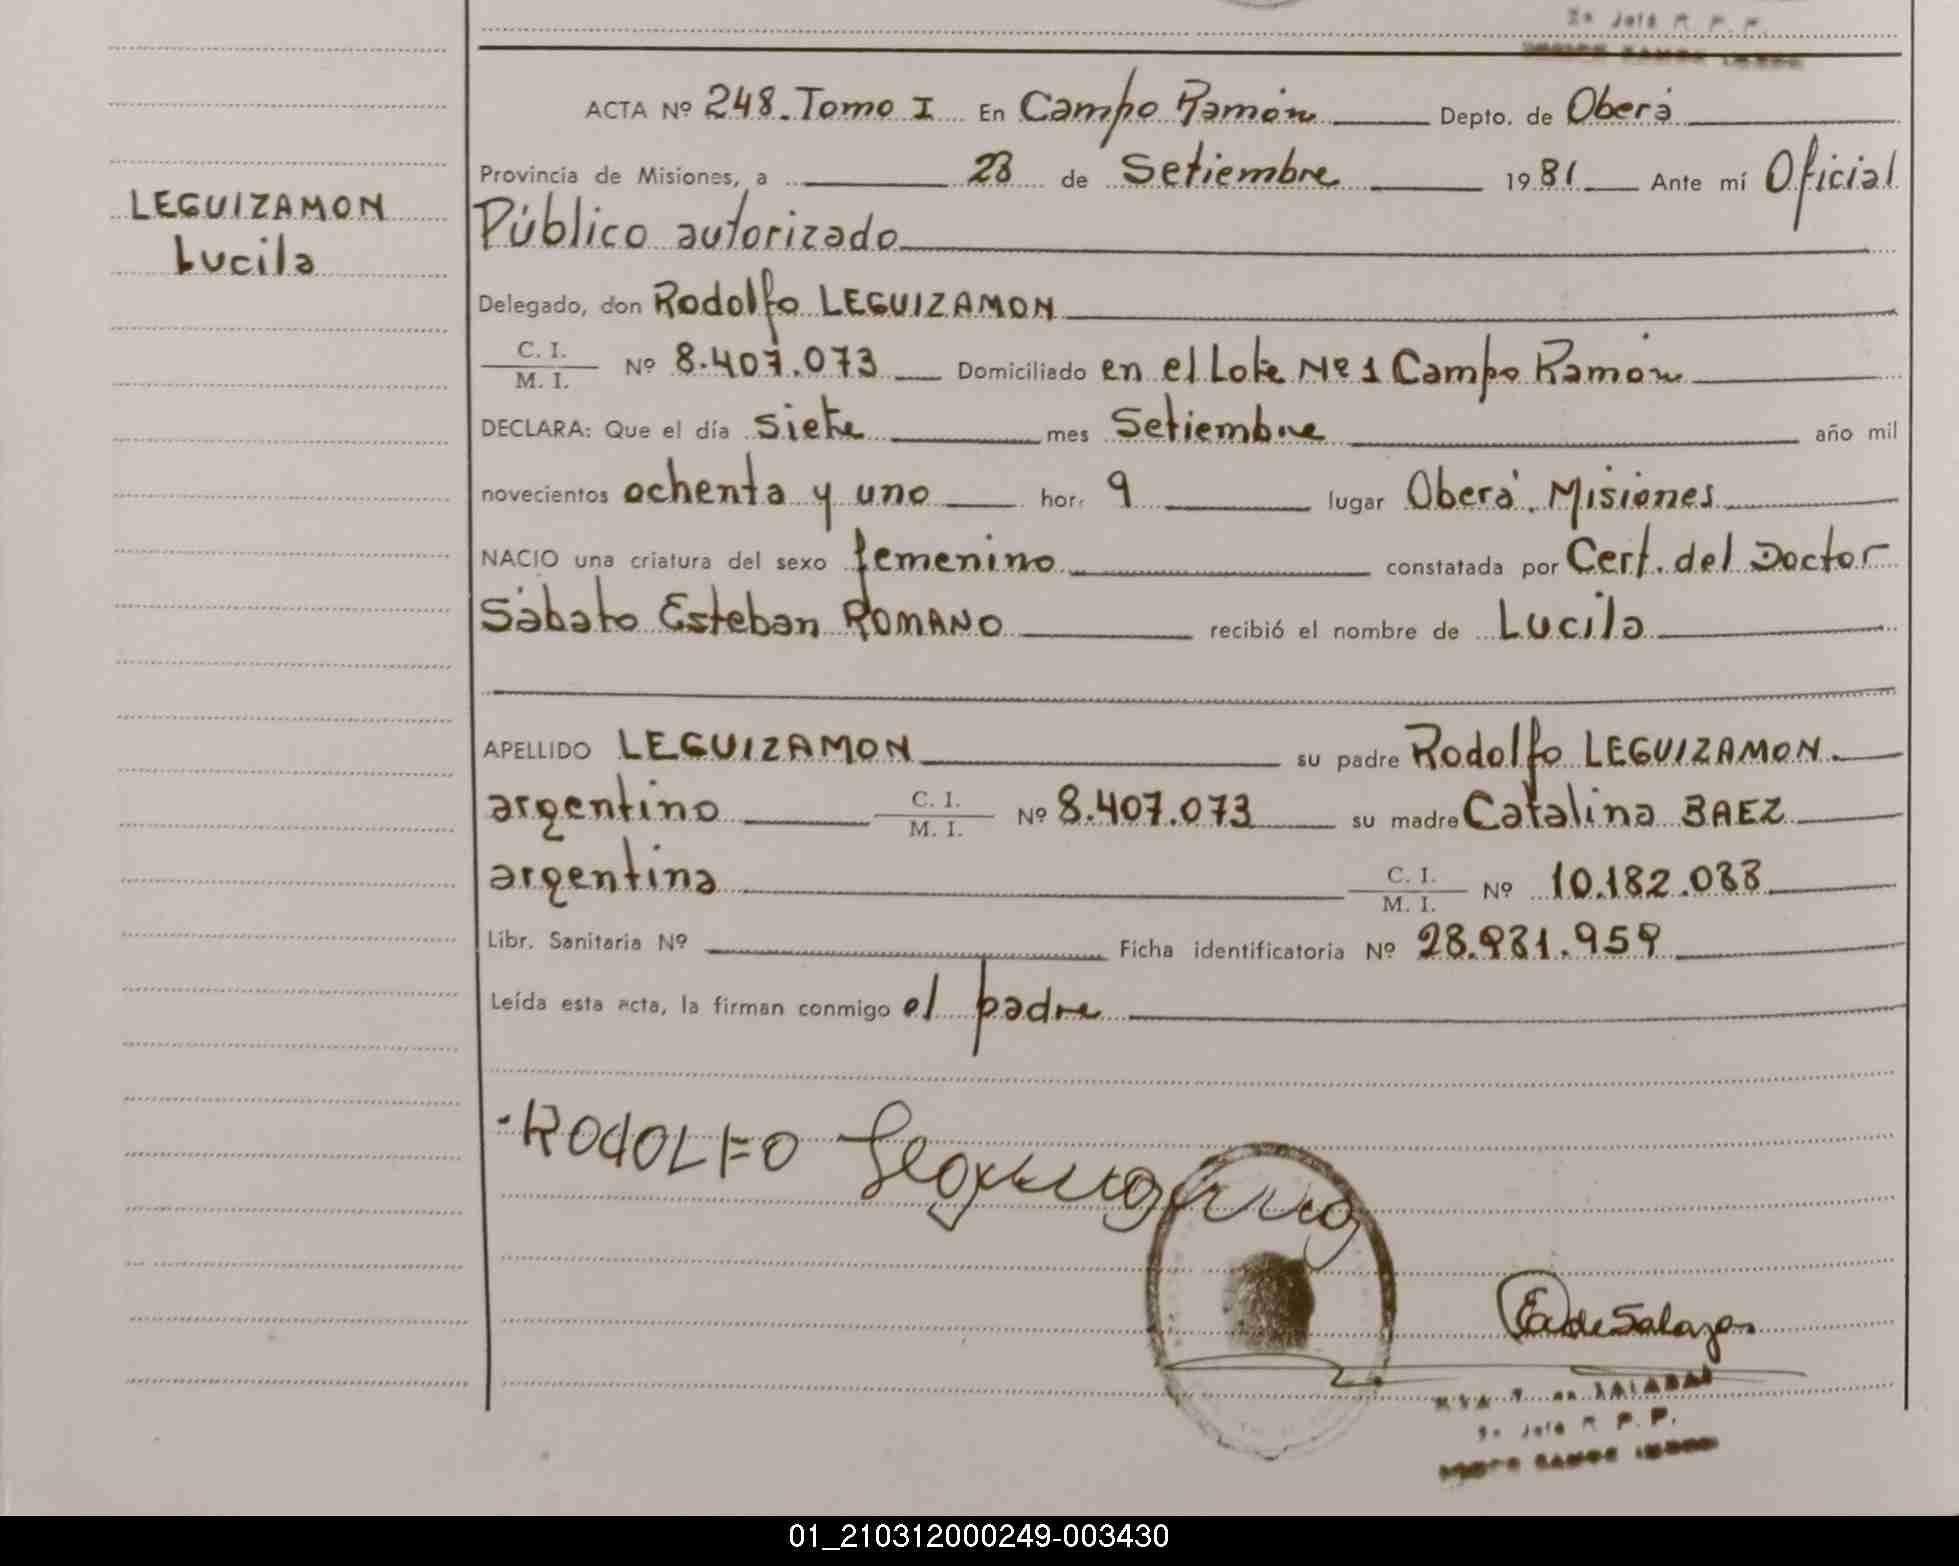 2º Jefe R. P. P.
ACTA Nº 248. Tomo I En Campo Ramón Depto. de Oberá
Provincia de Misiones, a 23 de Setiembre 1981 Ante mí Oficial
Público autorizado
LEGUIZAMON
Lucila
Delegado, don Rodolfo LEGUIZAMON
C. I.
M. I. Nº 8.407.073 Domiciliado en el Lote Nº 1 Campo Ramón
DECLARA: Que el día siete mes Setiembre año mil
novecientos ochenta y uno hor. 9 lugar Oberá. Misiones
NACIO una criatura del sexo femenino constatada por Cert. del Doctor
Sábato Esteban ROMANO recibió el nombre de Lucila
APELLIDO LEGUIZAMON su padre Rodolfo LEGUIZAMON.
argentino C. I.
M. I. Nº 8.407.073 su madre Catalina BAEZ
argentina C. I.
M. I. Nº 10.182.088
Libr. Sanitaria Nº Ficha identificatoria Nº 28.981.959
Leída esta acta, la firman conmigo el padre
RODOLFO
de Salazar
2º Jefe R. P. P.
01_210312000249-003430